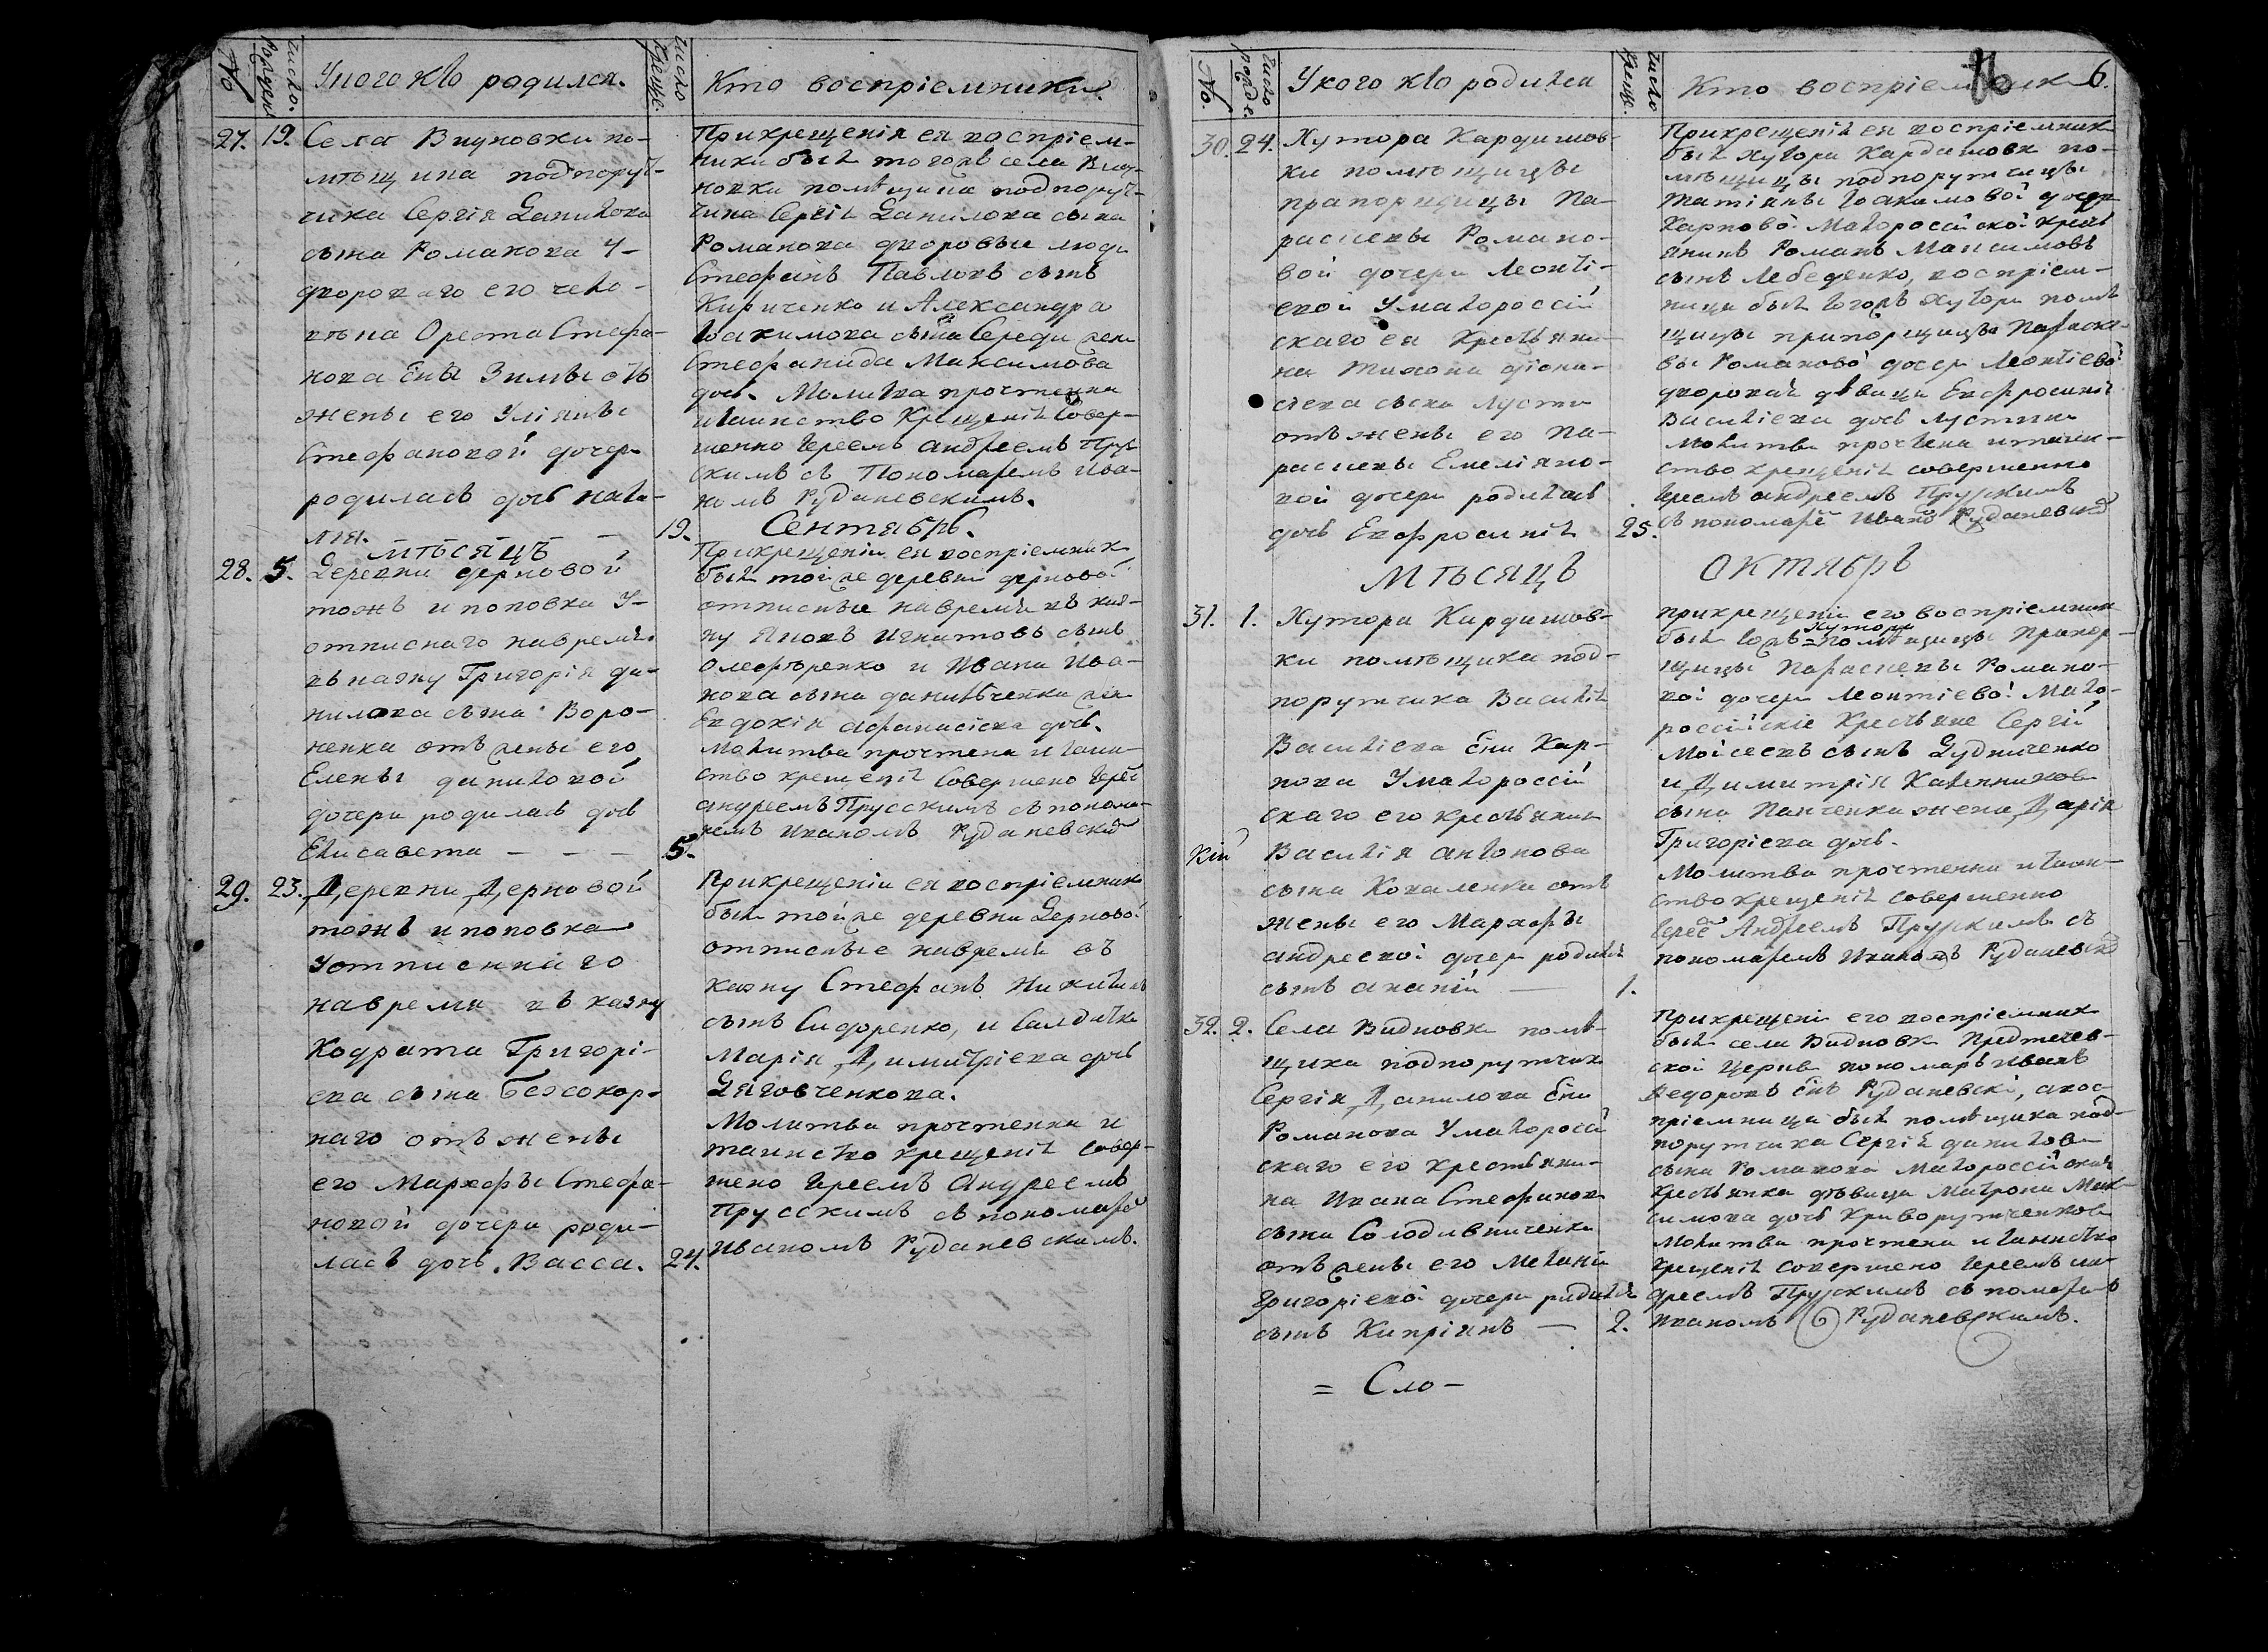 No
Число рожден.
У кого кто родился.
Число креще.
Кто воспріемники.
27. 19. Села Видновки по-
мѣщика подпоруч-
чика Сергія Данилова
сына Романова у
дворового его чело-
вѣка Ореста Стефа-
нова сна Зимы отъ
жены его Уліяны
Стефановой дочери
родилась дочь Ната-
лія. 19.
При крещеніи ея воспріем-
ники были тогожъ села Вид-
новки помѣщика подпоруч-
чика Сергія Данилова сына
Романова дворовые люди
Стефанъ Павловъ сынъ
Кириченко и Александра
Іоакимова сына Середи жена
Стефанида Максимова
дочь. Молитва прочтенна
и таинство Крещенія совер-
шенно Іереемъ Андреемъ Прус-
скимъ съ Пономаремъ Ива-
номъ Рудановскимъ.
мѣсяцъ Сентябрь.
28. 5. Деревни Дерновой
тожъ и поповка У
отписнаго навремя
въ казну Григорія Да-
нилова сына Воро-
ненка отъ жены его
Елены Даниловой
дочери родилась дочь
Елисавета — — — 5.
При крещеніи ея воспріемник
были тойже деревни Дерновой
отписные навремя въ каз-
ну Яковъ Игнатовъ сынъ
Олефѣренко и Ивана Ива-
нова сына Данильченка жена
Евдокія Афанасіева дочь.
Молитва прочтена и таин-
ство крещенія совершено Іерее
Андреемъ Прусскимъ съ понома-
ремъ Иваномъ Руданевски
29. 23. Деревни Дерновой
тожъ и поповка
У отписннаго
навремя въ казну
Кодрата Григорі-
ева сына Безсокор-
наго отъ жены
его Марфы Стефа-
новой дочери роди-
лась дочь Васса. 24.
При крещеніи ея воспріемник
были тойже деревни Дерновой
отписные навремя въ
казну Стефанъ Никитинъ
сынъ Сидоренко, и Салдатка
Марія Димитріева дочь
Дяговченкова.
Молитва прочтенна и
таинство крещенія совер-
шено Іереемъ Андреемъ
Прусскимъ съ пономаре
Иваномъ Руданевскимъ.
No.
Число рожде.
У кого кто родился
Число Креще.
Кто воспріемник 6.
30. 24. Хутора Кардашов-
ки помѣщицы
прапорщицы Па-
раскевы Романо-
вой дочери Леонті-
евой У малороссій
скаго ея Крестьяни-
на Тихона Діони-
сіева сына Лусты
отъ жены его Па-
раскевы Емеліяно-
вой дочери родилась
дочь Евфросинія 25.
При крещеніи ея воспріемник
былъ хутора Кардашовки по-
мѣщицы подпорутчицы
Татіяны Іоакимовой дочери
Карповой Малороссійской крест
янинъ Романъ Максимовъ
сынъ Лебеденко, воспріем-
ница была тогожъ хутора помѣ
щицы прапорщицы Параске
вы Романовой дочери Леонтіевой
дворовая дѣвица Евфросинія
Василіева дочь Лустина
Молитва прочтена и таин-
ство крещенія совершенно
Іереемъ Андреемъ Прускимъ
съ пономаре Ивано Руданевски
мѣсяцъ октябрь
31. 1. Хутора Кардашов-
ки помѣщика под-
порутчика Василія
Василіева сна Кар-
пова У малороссій
скаго его крестьянина
Василія Антонова
сына Коваленка отъ
жены его Марфы
Андреевой дочери родился
сынъ Ананій — 1.
При крещеніи его воспріемник
были тогожъ хутора помѣщицы Прапор-
щицы Параскевы Романо-
вой дочери Леонтіевой Мало-
россійскіе Крестьяне Сергій
Моісеевъ сынъ Дудниченко
и Димитрія Калинников
сына Панченка жена Дарія
Григоріева дочь.
Молитва прочтенна и таин-
ство крещенія совершенно
Іерее Андреемъ Прускимъ съ
пономаремъ Иваномъ Руданевски
32. 2. Села Видновки помѣ-
щика подпорутчика
Сергія Данилова сна
Романова У малоросій
скаго его крестьяни-
на Ивана Стефанова
сына Солодивниченка
отъ жены его Меланіи
Григоріевой дочери родился
сынъ Кипріянъ — 2.
При крещеніи его воспріемник
былъ села Видновки Предтечев-
ской Церкви пономарь Иванъ
Федоровъ снъ Руданевскі, а вос-
пріемница была помѣщика под-
порутчика Сергія Данилова
сына Романова Малороссійская
крестьянка дѣвица Матрона Мак-
симова дочь Криворутченкова
Молитва прочтена и таинство
крещенія совершено Іереемъ Ан-
дреемъ Прускимъ съ помаремъ
Иваномъ Руданевскимъ.
= Сло-